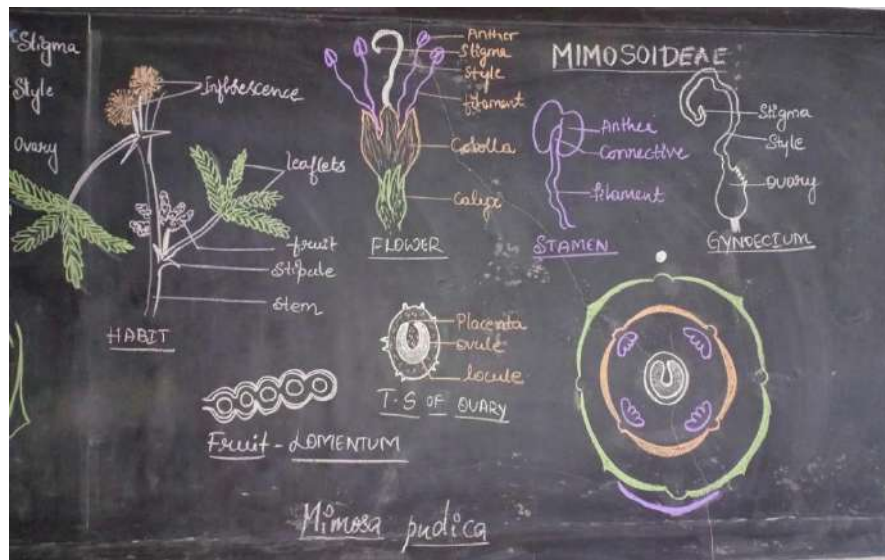 Stigma
Style
Ovary
Inflorescence
leaflets
fruit
stipule
stem
HABIT
Anther
Stigma
Style
filament
Corolla
Calyx
FLOWER
MIMOSOIDEAE
Anther
Connective
filament
STAMEN
Stigma
Style
Ovary
GYNOECIUM
Placenta
ovule
locule
T.S OF OVARY
Fruit - LOMENTUM
Mimosa pudica